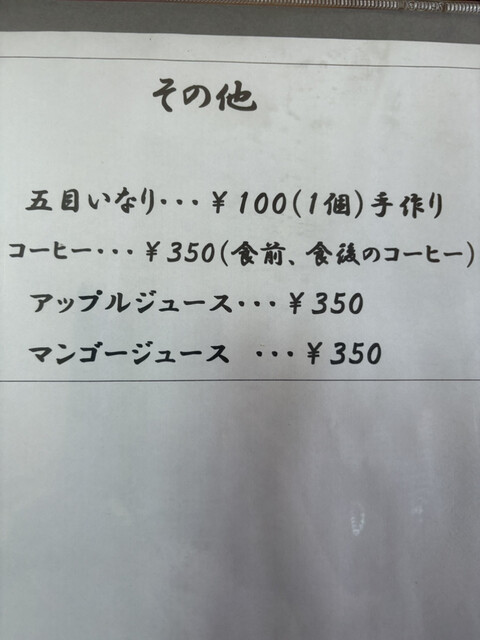 その他
五目いなり・・・￥100(1個)手作り
コーヒー・・・￥350(食前、食後のコーヒー)
アップルジュース・・・￥350
マンゴージュース ・・・￥350